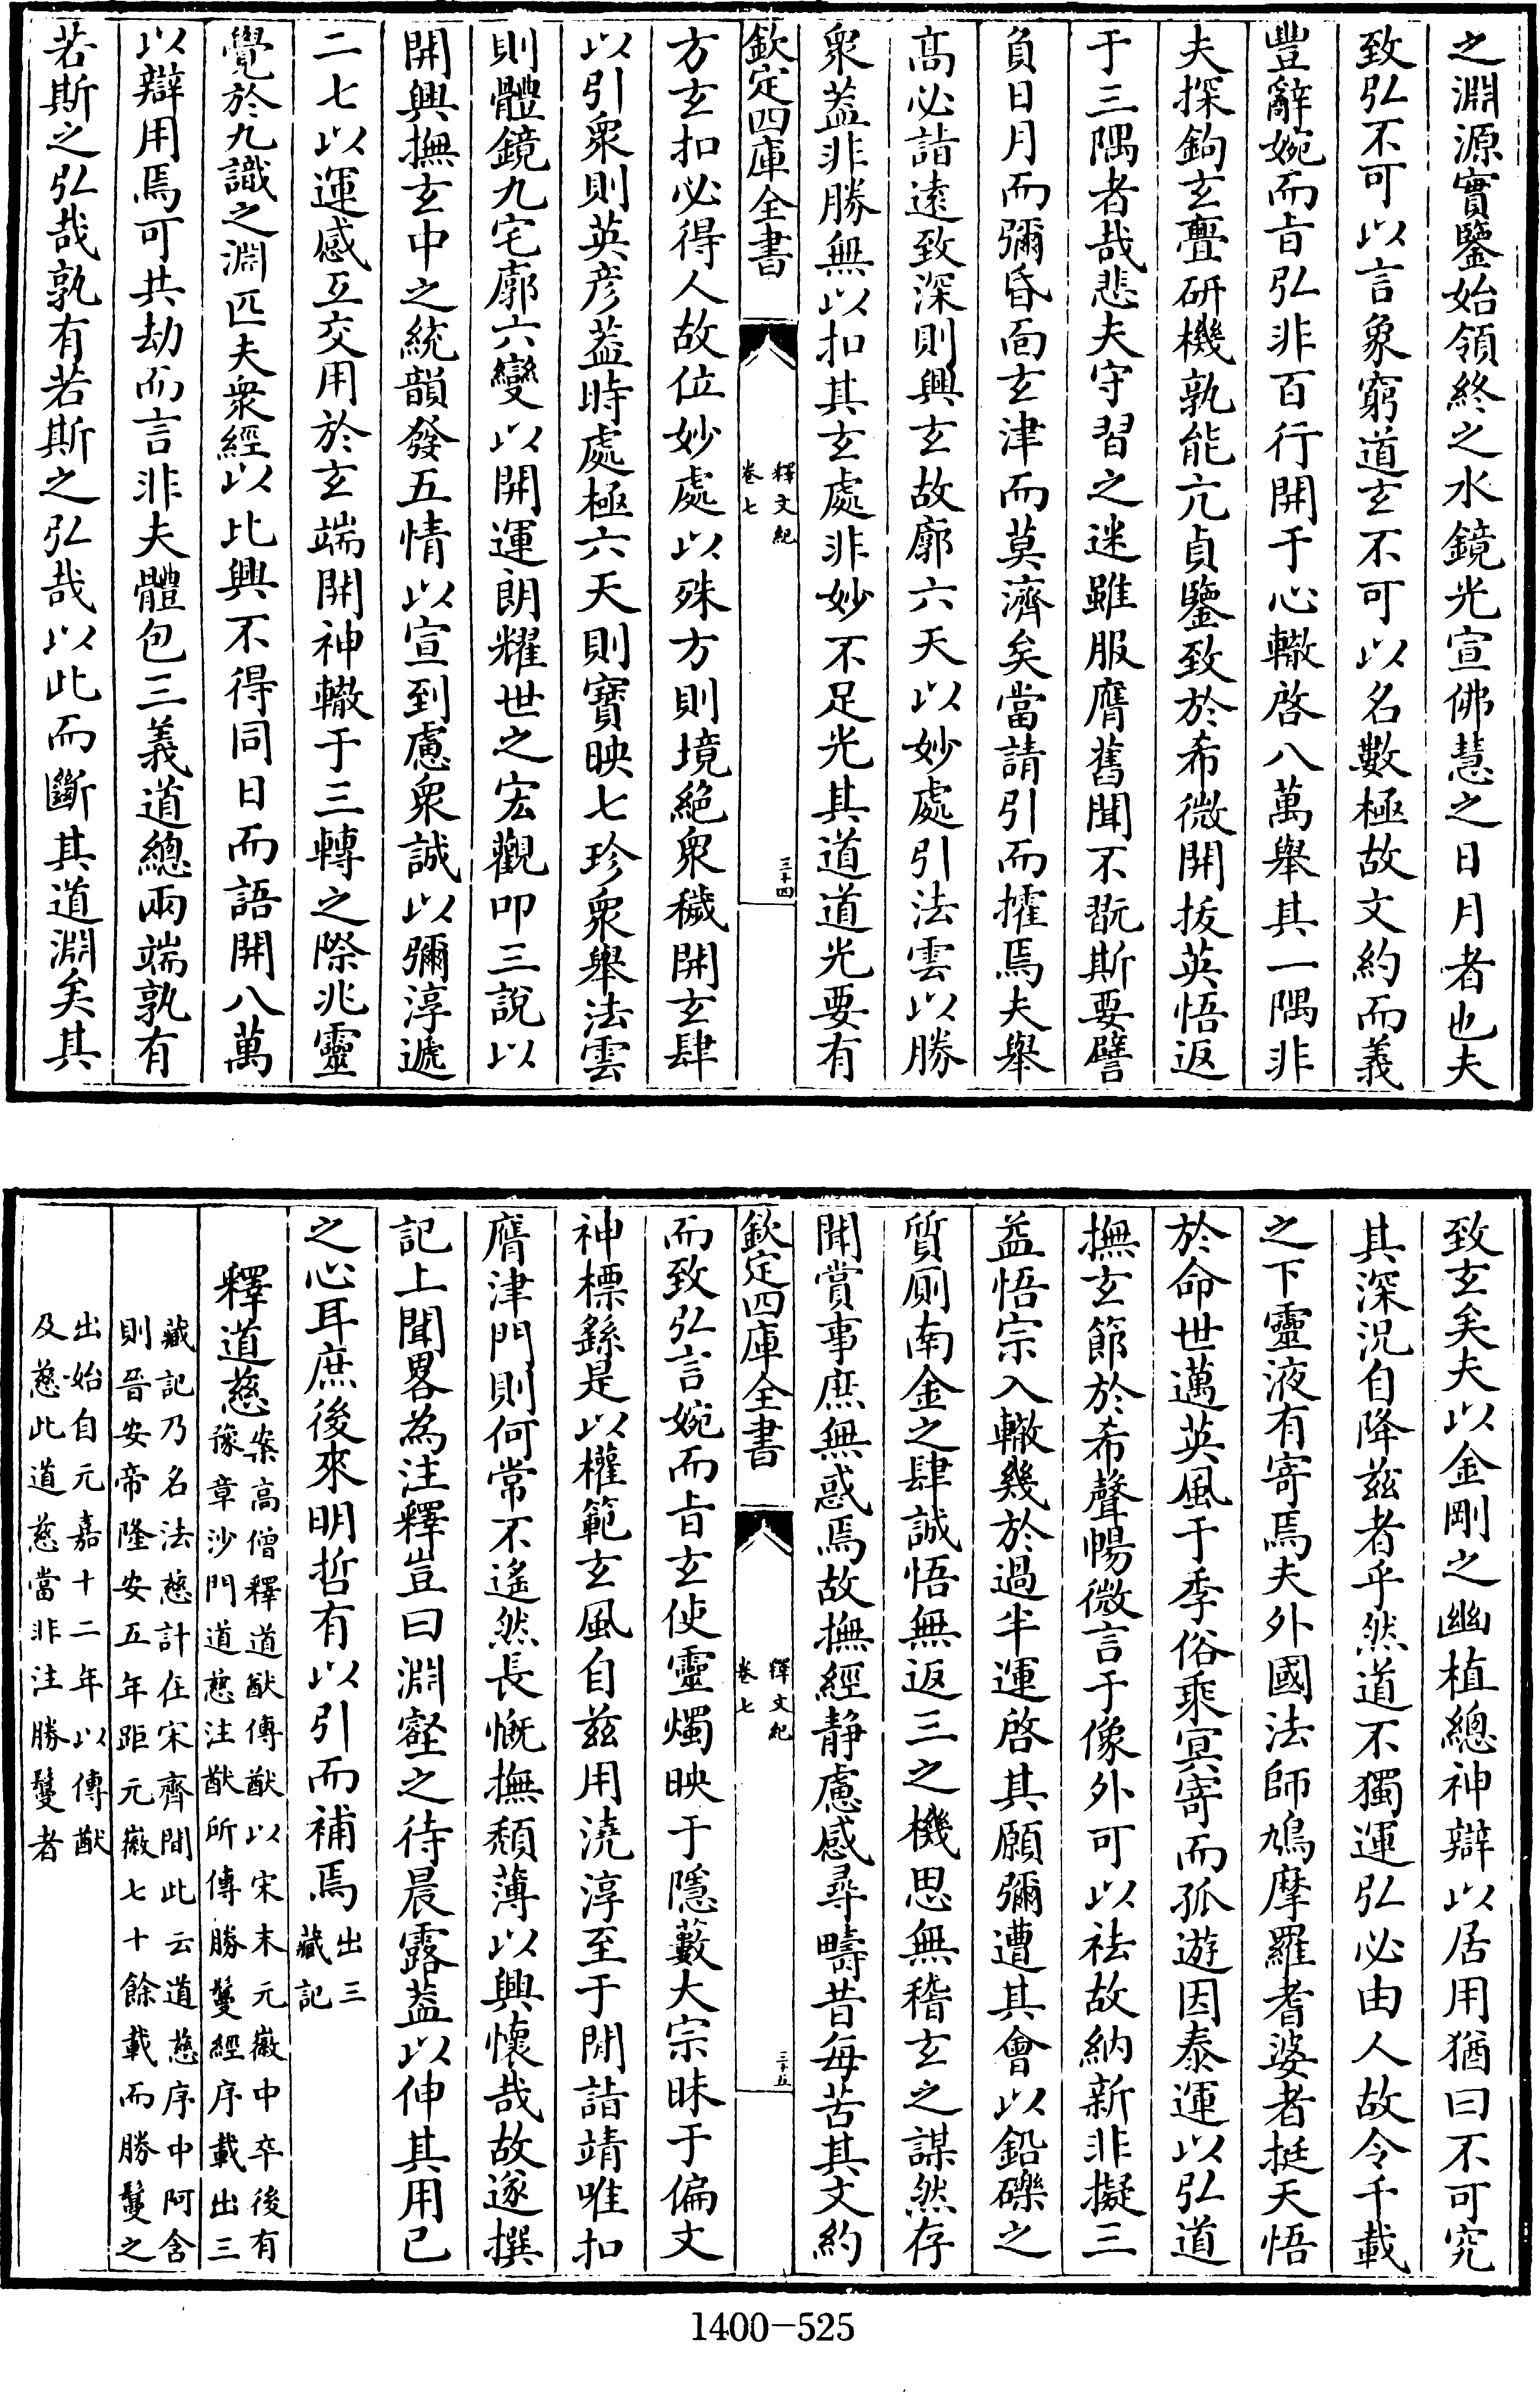 之淵源實鑒始領終之水鏡光宣佛慧之日月者也夫
致弘不可以言象窮道玄不可以名數極故文約而義
豐辭婉而㫖弘非百行開于心轍啓八萬舉其一隅非
夫探鉤玄亹研機孰能亢貞鑒致於希微開拔英悟返
于三隅者哉悲夫守習之迷雖服膺舊聞不翫斯要譬
負日月而彌昏面玄津而莫濟矣當請引而擢焉夫舉
高必詣遠致深則興玄故廓六天以妙處引法雲以勝
衆葢非勝無以扣其玄處非妙不足光其道道光要有
欽定四庫全書
釋文紀
卷七
三十四
方玄扣必得人故位妙處以殊方則境絶衆穢開玄肆
以引衆則英彦葢時處極六天則寶映七珍衆舉法雲
則體鏡九宅廓六變以開運朗耀世之宏觀叩三說以
開興撫玄中之統韻發五情以宣到慮衆誠以彌淳遞
二七以運感互交用於玄端開神轍于三轉之際兆靈
覺於九識之淵匹夫衆經以比興不得同日而語開八萬
以辯用焉可共劫而言非夫體包三義道總兩端孰有
若斯之弘哉孰有若斯之弘哉以此而斷其道淵矣其
致玄矣夫以金剛之幽植總神辯以居用猶曰不可究
其深況自降兹者乎然道不獨運弘必由人故令千載
之下靈液有寄焉夫外國法師鳩摩羅耆婆者挺天悟
於命世邁英風于季俗乘冥寄而孤遊因泰運以弘道
撫玄節於希聲暢微言于像外可以祛故納新非擬三
益悟宗入轍幾於過半運啓其願彌遭其會以鉛礫之
質厠南金之肆誠悟無返三之機思無稽玄之謀然存
開賞事庶無惑焉故撫經靜慮感尋疇昔每苦其文約
欽定四庫全書
釋文紀
卷七
三十五
而致弘言婉而㫖玄使靈燭映于隱藪大宗昧于偏文
神標繇是以權範玄風自兹用澆淳至于開詣靖唯扣
膺津門則何常不遙然長慨撫頽薄以興懷哉故遂撰
記上聞畧為注釋豈曰淵壑之待晨露葢以伸其用已
之心耳庶後來明哲有以引而補焉出三
藏記
釋道慈案高僧釋道猷傳猷以宋末元徽中卒後有
豫章沙門道慈注猷所傳勝鬘經序載出三
藏記乃名法慈計在宋齊間此云道慈序中阿含
則晉安帝隆安五年距元徽七十餘載而勝鬘之
出始自元嘉十二年以傳猷
及慈此道慈當非注勝鬘者
1400-525